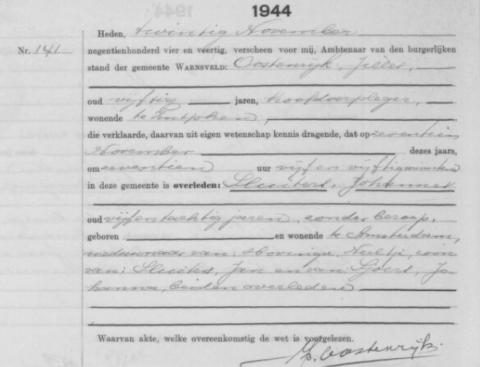 1944
Heden, twintig November
Nr. 141 negentienhonderd vier en veertig, verscheen voor mij, Ambtenaar van den burgerlijken
stand der gemeente WARNSVELD: Oostenrijk, Jilles,
oud vijftig jaren, hoofdverpleger,
wonende te Eutphen,
die verklaarde, daarvan uit eigen wetenschap kennis dragende, dat op zeventien
November dezes jaars,
om zeventien uur vijf en vijftig minuten
in deze gemeente is overleden: Sluiters, Johannes
oud vijfentachtig jaren, zonder beroep,
geboren en wonende te Amsterdam,
weduwnaar van: Neeltje, zoon
van: Sluiters, Jan en van Goert, Jo-
hanna, beiden overleden
Waarvan akte, welke overeenkomstig de wet is voorgelezen.
Oostenrijk.